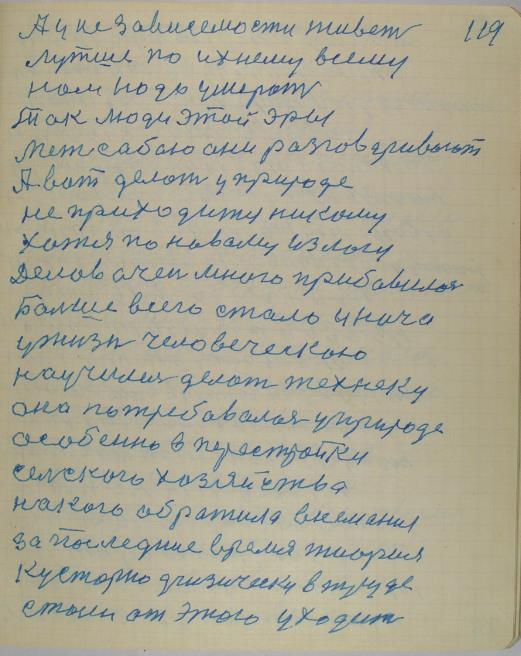 А у независемости живет 119
лутше по ихнему всему
нам надо умерат
Так люди этой эры
меж сабаю они разговаривают
А вот делат у природе
не приходит никому
хотя по новаму изложу
Делов очен много прибавилоя
Болше всего стало иначе
у жизн человеческаю
научился делат технеку
она потребавалая у природе
особенно в перестройки
селского хозяйства
накого обратила внемания
за последние время теория
Кусторно физически в труде
стали от этого уходит